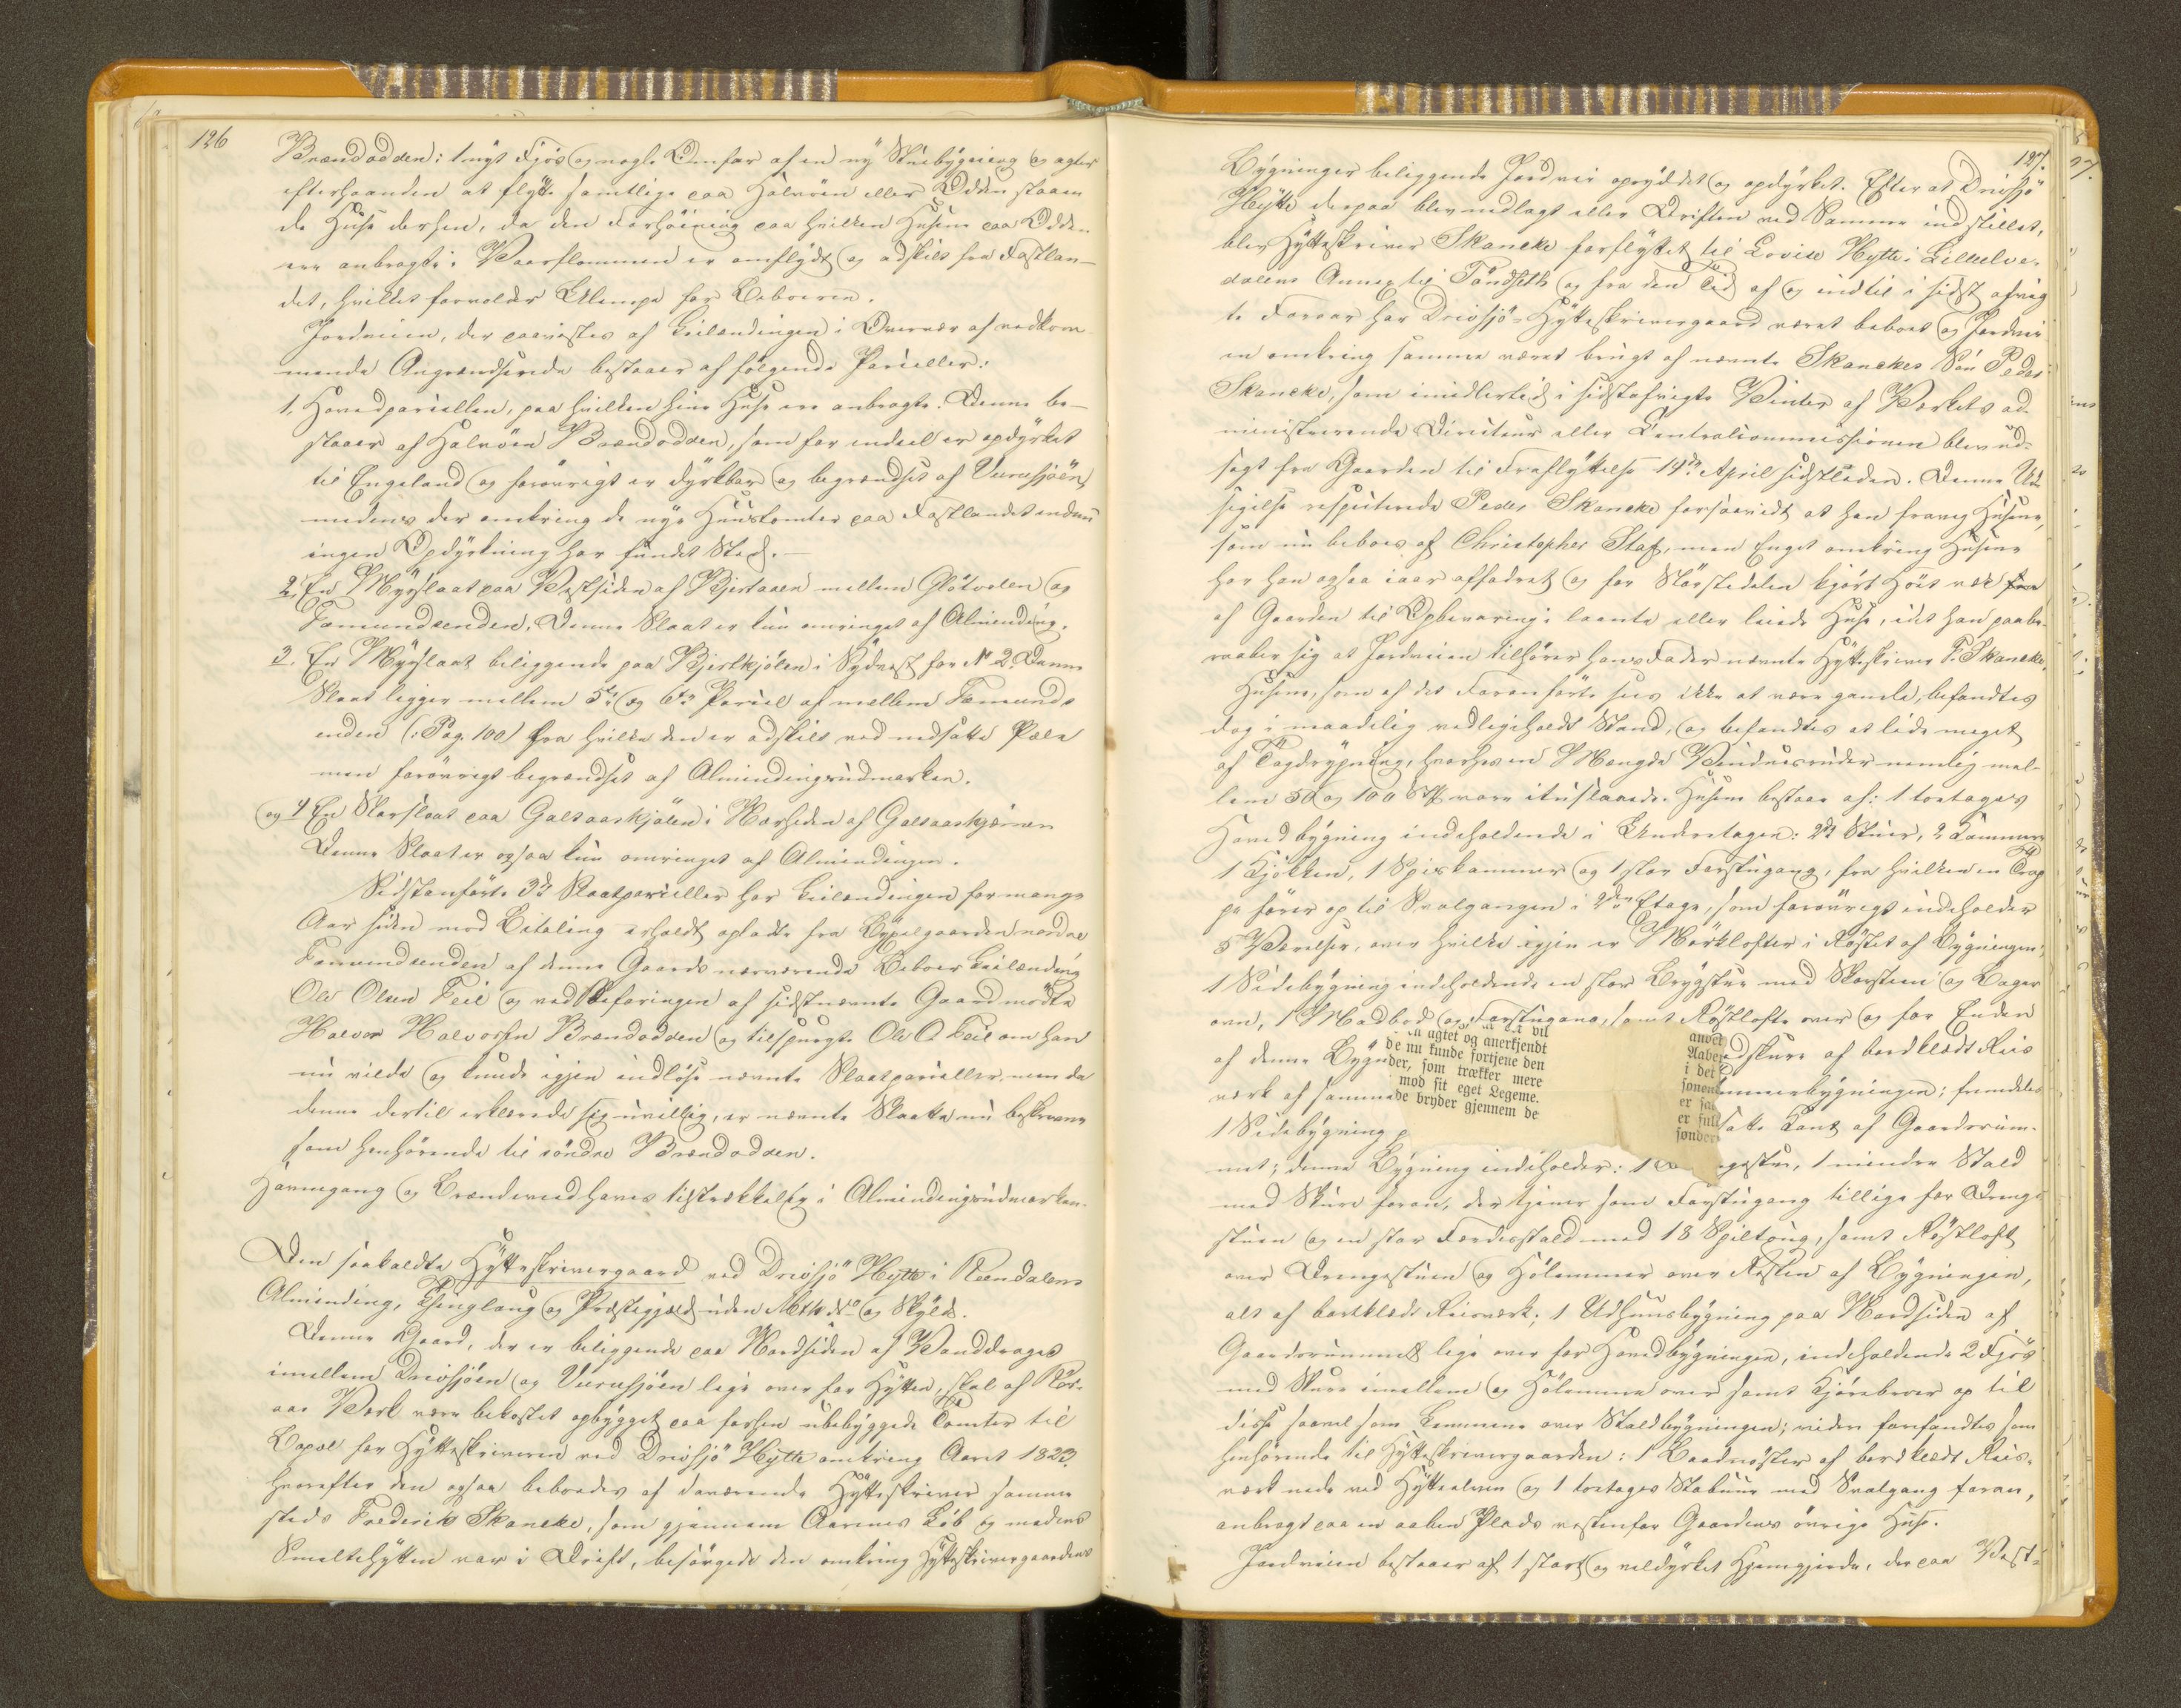 126
Brændodden: 1 nyt Fjøs og nogle Omfar af en ny Stuebygning og agter
efterhaanden at flytte samtlige paa Halvøen eller Odden staaen
de Huse derhen, da den Forhøining paa hvilken Husene paa Odden
ere anbragte i Vaarflommen er omflydt og adskilt fra Fastlan-
det, hvilket forvolder Ulempe for Beboeren.
Jordveien, der paavistes af Leilændingen i Overvær af vedkom-
mende Angrændsende bestaaer af følgende Parceller:
1, Hovedparcellen, paa hvilken hine Huse ere anbragte. Denne be-
staaer af Halvöen Brændodden, som for endeel er opdyrket
til Engeland og forövrigt er dyrkbar og begrændset af Vurusjöen,
medens der omkring de nye Huustomter paa Fastlandet endnu
ingen Opdyrkning har fundet Sted.
2, En Myrslaat paa Vestsiden af Bjertaaen mellem Glötvolen og
Fæmundsenden. Denne Slaat er kun omringet af Alminding.
3. En Myrslaat beliggende paa Bjertkjölen i Sydvest for N 2. Denne
Slaat ligger mellem 5te og 6te Parcel af mellem Fæmunds
enden (: Pag. 100) fra hvilke den er adskilt ved nedsatte Pæle
men forövrigt begrændset af Almindingsudmarken.
og 4 En Storslaat paa Galaaskjölen i Nordsiden af Galaaskjærnen
Denne Slaat er ogsaa kun omringet af Almindingen.
Sidstanförte 3de Slaatparceller har Leilændingen for mange
Aar siden mod Betaling erholdt opladte fra Bygselgaarden nordre
Fæmundsenden af denne Gaards nærværende Beboer Leilænding
Ole Olsen Feil og ved Befaringen af sidstnævnte Gaard mödte
Halvor Halvorsen Brændodden og tilspurgte Ole O. Feil om han
nu vilde og kunde igjen indlöse nævnte Slaatparceller, men da
denne dertil erklærede sig uvillig, er nævnte Slaatte nu beskrevne
som henhörende til söndre Brændodden.
Havnegang og Brændeved haves tilstrækkelig i Almindingsudmarken.
Den saakaldte Hytteskrivergaard ved Drevsjö Hytte i Rendalens
Alminding, Thinglaug og Præstegjeld uden Matr. No og Skyld.
Denne Gaard, der er beliggende paa Nordsiden af Vanddraget
imellem Drevsjöen og Vurusjöen lige over for Hytten, skal af Rör-
aas Værk være bekostet opbygget paa forhen ubebyggede Tomter til
Bopæl for Hytteskriveren ved Drevsjö Hytte omkring Aaret 1823,
hvorefter den ogsaa beboedes af daværende Hytteskriver samme
steds Frederik Skancke, som gjennem Aarenes Löb og medens
Smeltehytten var i Drift, besörgede den omkring Hytteskrivergaardens
127.
Bygninger beliggende Jordvei opryddet og opdyrket. Efter at Drevsjö
Hytte derpaa blev nedlagt eller Driften ved Samme indstillet,
blev Hytteskriver Skancke forflyttet til Lovise Hytte i Lilleelve-
dalens Annex til Töndseth og fra den Tid af og indtil i sidst afvig
te Foraar har Drevsjö Hytteskrivergaard været beboet og Jordvei
en omkring samme været brugt af nævnte Skanckes Sön Peder
Skancke, som imidlertid i sidstafvigte Vinter af Værkets ad-
ministrerende Directeur eller Centralcommissionen blev ud-
sagt fra Gaarden til Fraflyttelse 14de April sidstleden. Denne Ud-
sigelse respecterede Peder Skancke forsaavidt at han fraveg Husene,
som nu beboes af Christopher Staf, men Enget omkring Husene
har han ogsaa iaar affodret og for Störstedelen kjört Höet væk
af Gaarden til Opbevaring i laante eller leiede Huse, idet han paabe-
raaber sig at Jordveien tilhörer hans Fader nævnte Hytteskriver F. Skancke.
Husene, som af det Foranförte sees ikke at være gamle, befandtes
dog i maadelig vedligeholdt Stand, og befandtes at lide meget
af Tagdrypning, hvorhos en Mængde Vinduesruder nemlig mel-
lem 50 og 100 Stk vare ituslaaede. Husene bestaae af: 1 toetages
Hovedbygning indeholdende i Underetagen: 2de Stuer, 2 Kammere
1 Kjökken, 1 Spiskammer og 1 stor Forstugang, fra hvilken en Trap
pe förer op til Svalgangen i 2den Etage, som forövrigt indeholder
5 Værelser, over hvilke igjen er Mörklofter i Röstet af Bygningen;
1 Sidebygning indeholdende en stor Brygstue med Skorsteen og Bager
ovn, 1 Madbod og Forstugang, samt Röstlofte over og for Enden
af denne Bygn edskure af bordklædt Reis
værk af samme ömmerbygningen; fremdeles
1 Sidebygning p satte Kant af Gaardsrum-
met; denne Bygning indeholder: 1 gestue, 1 mindre Stald
med Skure foran, der tjener som Forstugang tillige for Drenge
stuen og en stor Færdesstald med 18 Spiltoug, samt Röstloft
over Drengestuen og Hölemmer over Resten af Bygningen,
alt af bordklædt Reisværk; 1 Udhuusbygning paa Nordsiden af
Gaardsrummet lige over for Hovedbygningen, indeholdende 2 Fjös
med Skure imellem og Hölemme over samt Kjörebroer op til
disse saavel som Lemmene over Staldbygningen; videre forefandtes som
henhörende til Hytteskrivergaarden: 1 Baadnöster af bordklædt Reis-
værk nede ved Hytteelven og 1 toetages Stabuur med Svalgang foran,
anbragt paa en aaben Plads vestenfor Gaardens övrige Huse.
Jordveien bestaaer af 1 stort og veldyrket Hjemgjerde, der paa Vest-
agtet og anerkjendt
de nu kunde fortjene den
der, som trækker mere
mod sit eget Legeme.
de bryder gjennem de
Aabe
i det
sonen
er
er
sonder